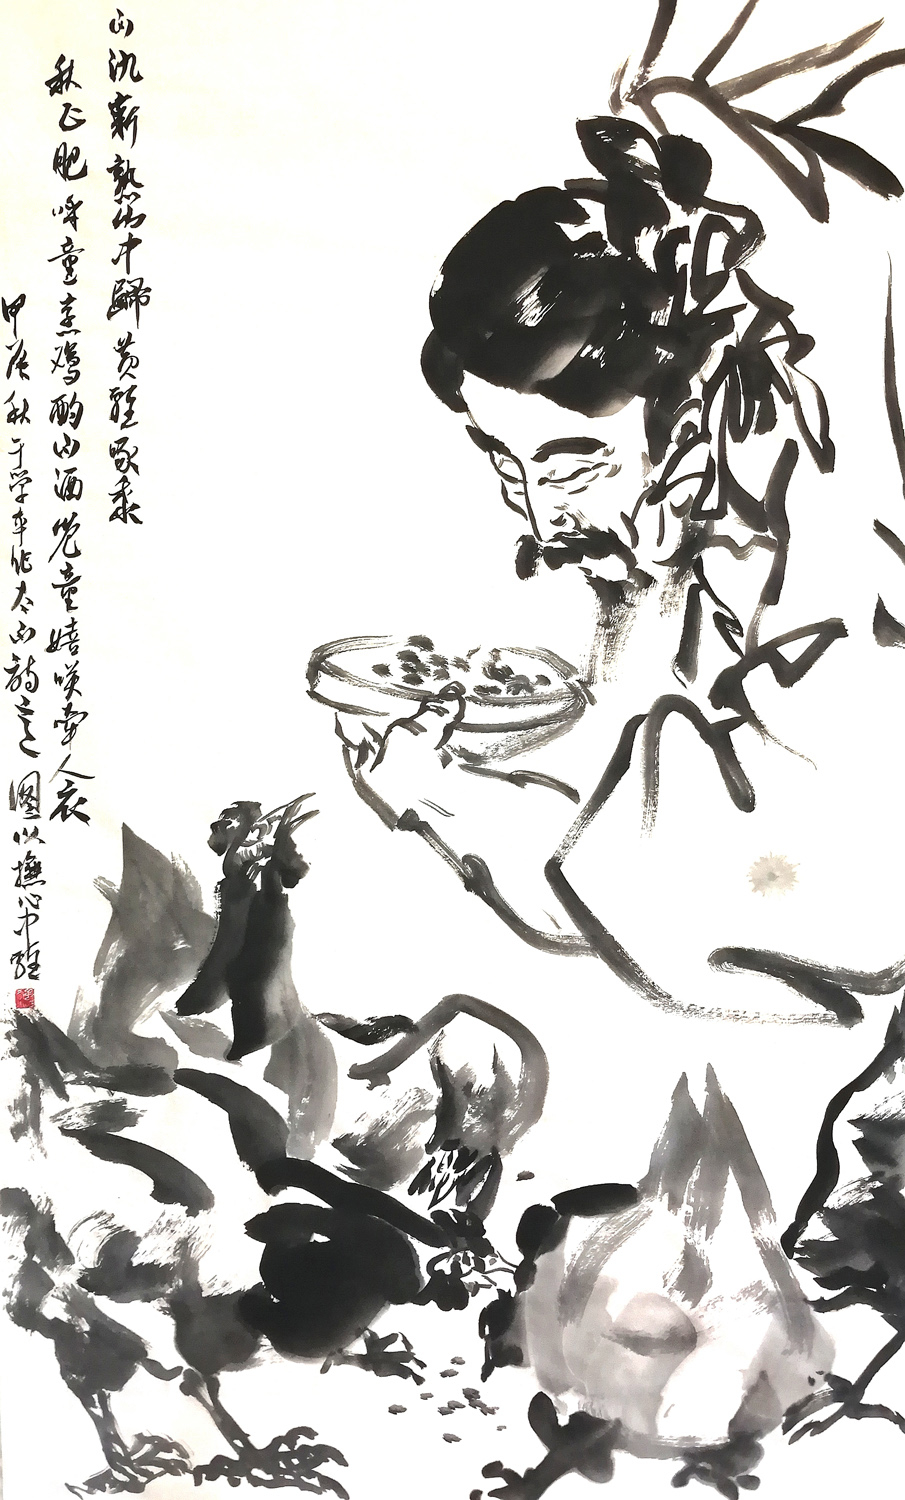 白酒新熟山中歸黄雞啄黍
秋正肥呼童烹鸡酌白酒児童嬉咲牽人衣
甲辰秋于学作太白詩意圖以撫心中